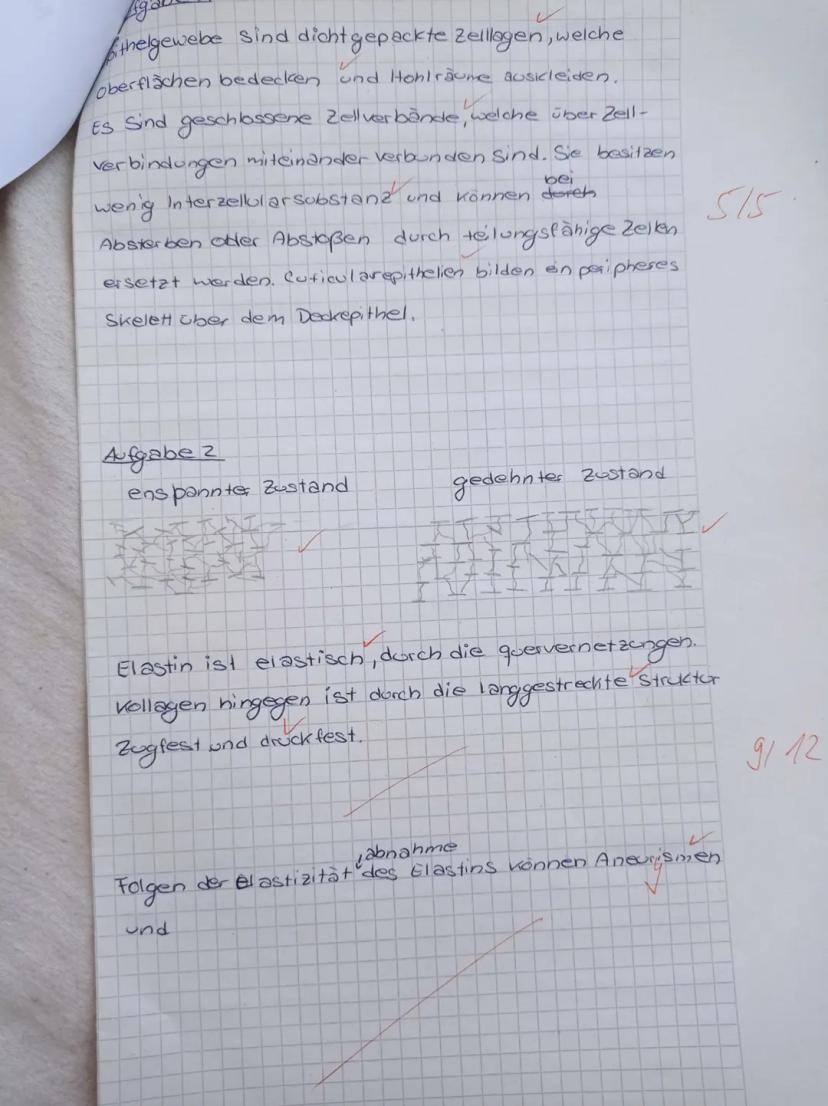 fga
thelgewebe sind dichtgepackte Zelllagen, welche
oberflächen bedecken und Hohlräume auskleiden.
Es sind geschlossene Zellverbände, welche über Zell-
verbindungen miteinander verbunden sind. Sie besitzen
wenig Interzellularsubstanz und können durch bei
Absterben oder Abstoßen durch teilungsfähige Zellen
ersetzt werden. Cuticularepithelien bilden ein peripheres
Skelett über dem Deckepithel.
5/5
Aufgabe 2
enspannter Zustand gedehnter Zustand
Elastin ist elastisch, durch die quervernetzungen.
Kollagen hingegen ist durch die langgestreckte Struktur
Zugfest und druckfest.
9/12
Folgen der Elastizitätabnahme des Elastins können Aneurismen
y
und